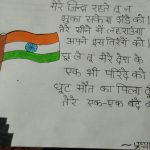 मेरे जिन्दा रहते तू न
झुका सकेगा झंडे की
मेरे सीने में लहराएगा
अपने इस तिरंगे की
छू ले तू मेरे देश के
एक भी परिंदे को
घूट मौत का पिला दू
तेरे एक-एक बंदे क